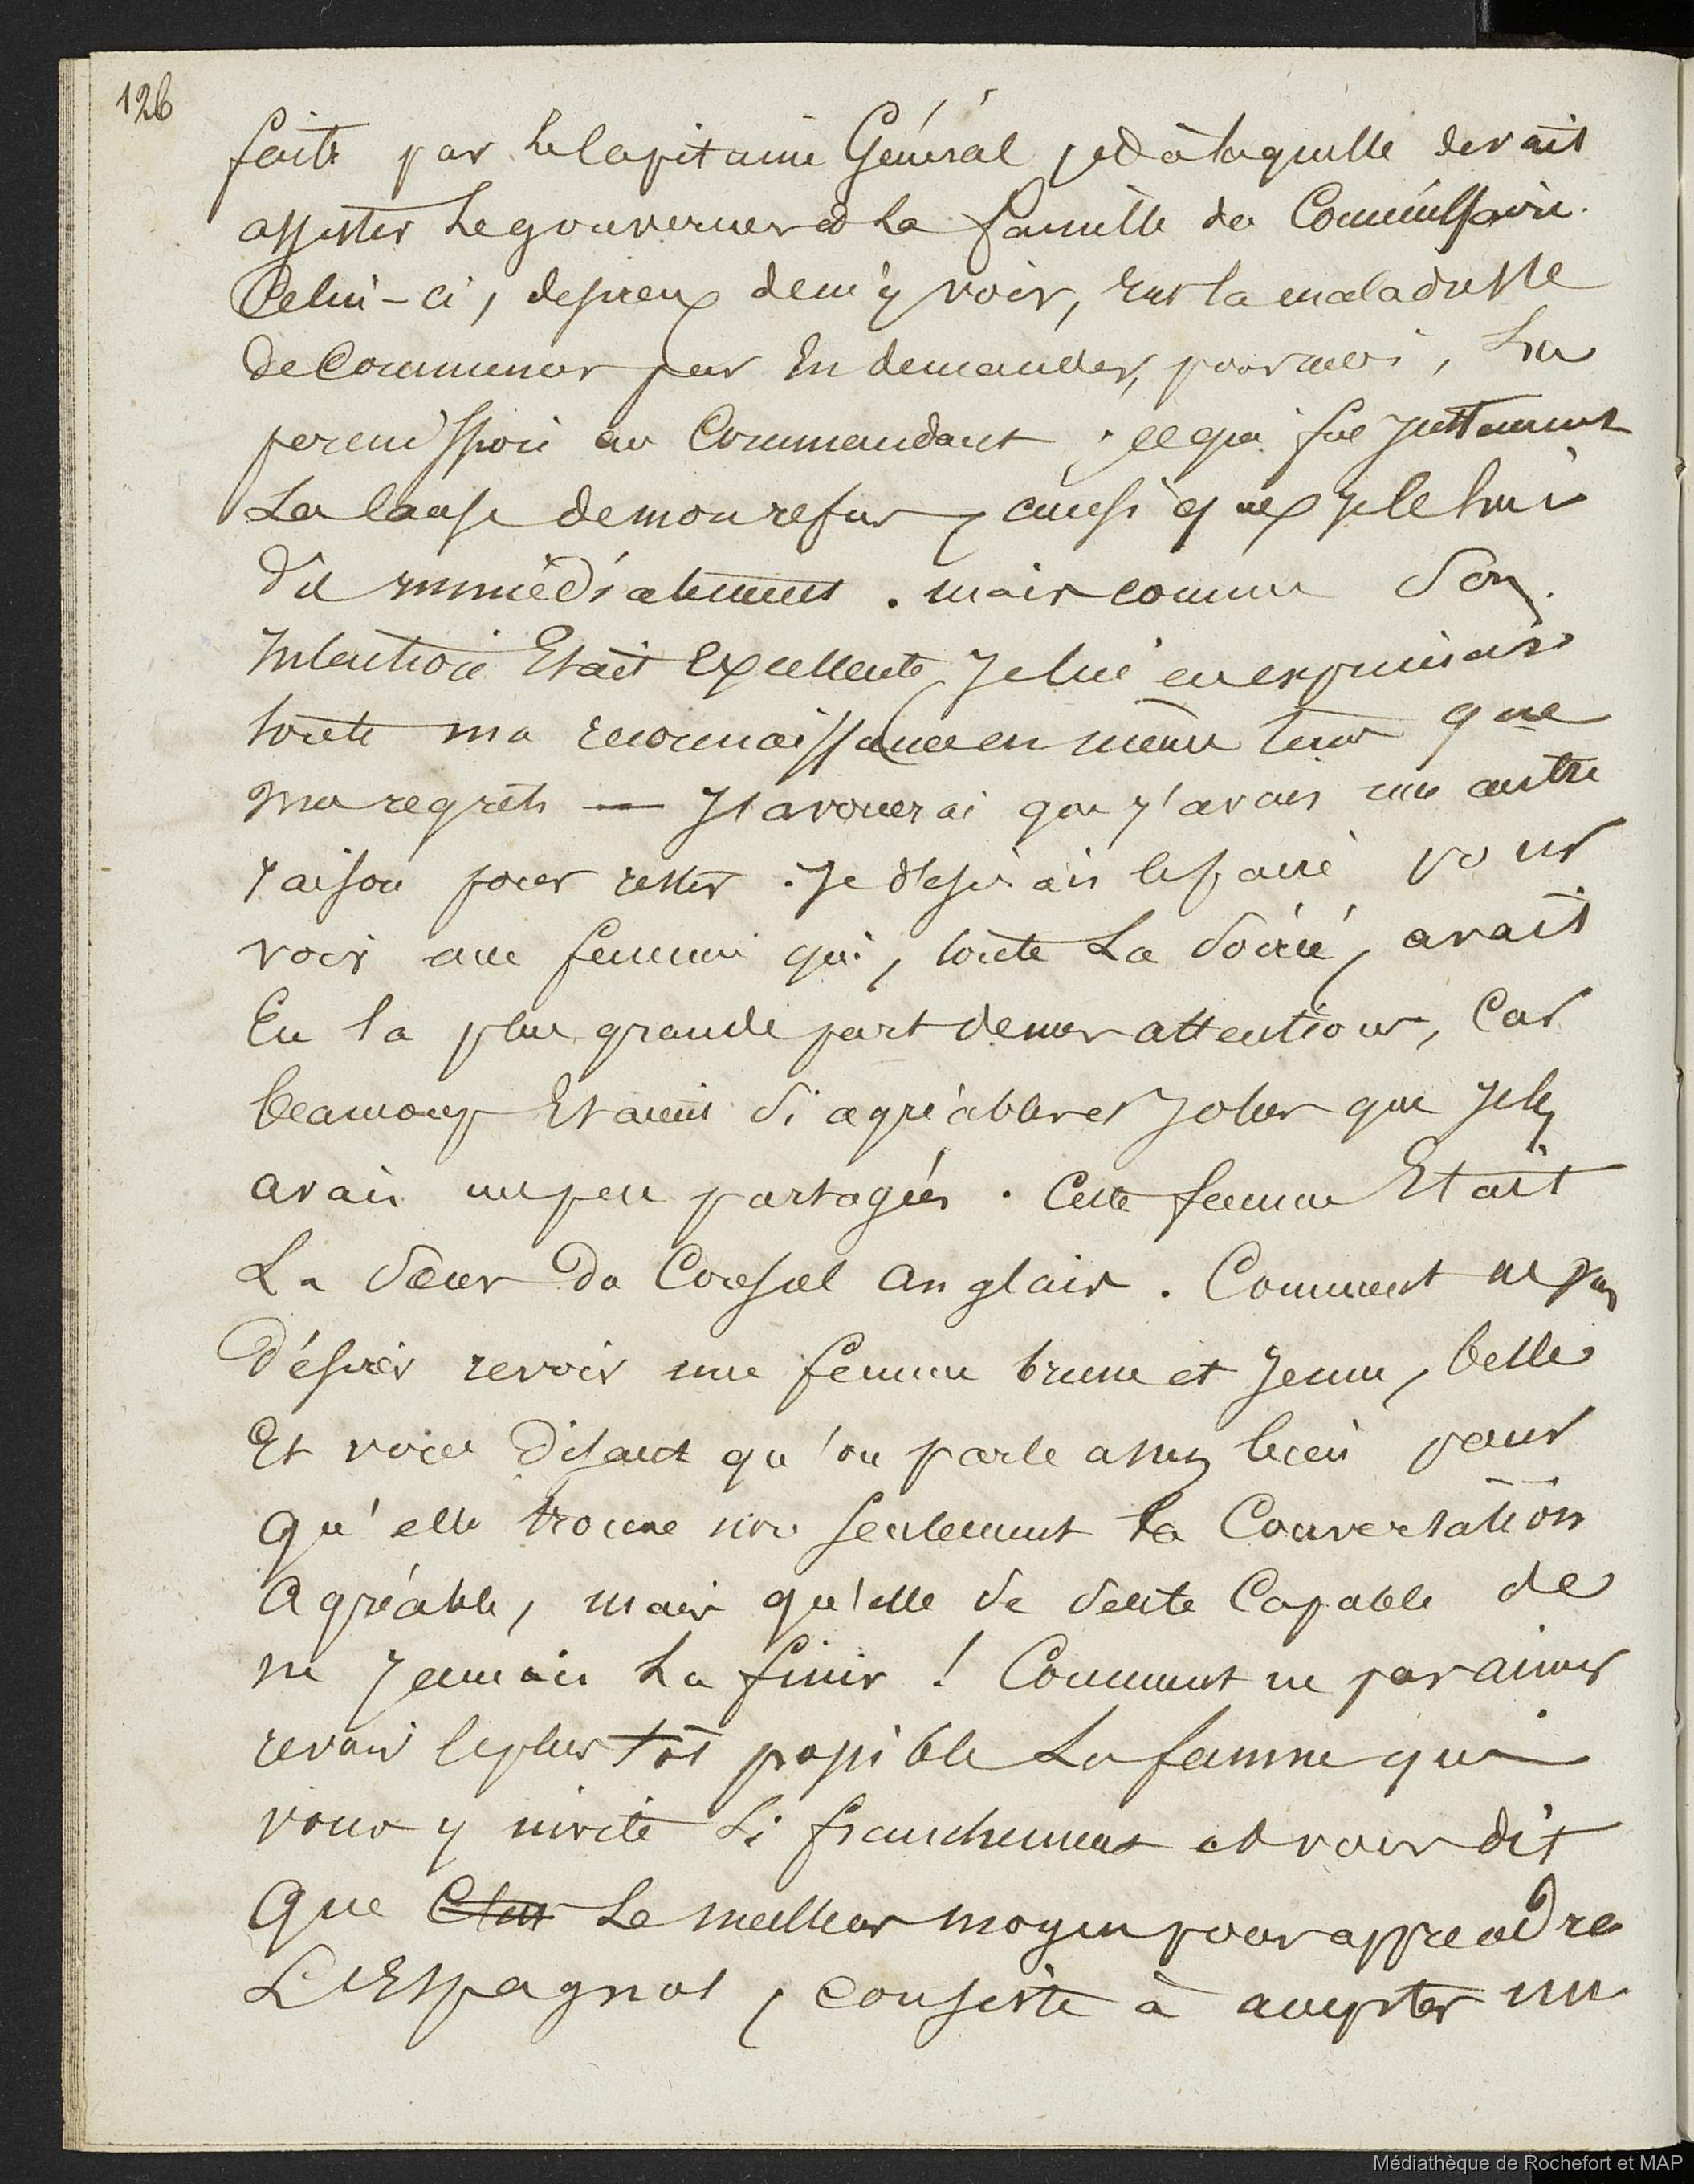 126
faite par Le Capitaine Général, et à laquelle devait
assister Le gouverneur et La famille du Commissaire.
Celui-ci, desireux de m'y voir, eut la maladresse
de Commencer par En demander, pour moi, La
permission au Commandant, ce qui fut justement
La Cause de mon refus, ainsi que je le lui
dis immédiatement. mais comme Son
Intention Etait Excellente, Je lui en exprimais
toute ma reconnaissance en même tems que
mes regrets — J'avouerai que j'avais une autre
raison pour rester. Je désirais le faire pour
voir une femme qui, toute La Soirée, avait
Eu la plus grande part de mes attentions, Car
beaucoup Etaient Si agréables et Jolies que Je les
avais un peu partagées. Cette femme Etait
La Soeur du Consul Anglais. Comment ne pas
désirer revoir une femme brune et Jeune, belle
Et vous disant qu'on parle assez bien pour
qu'elle trouve non Seulement la Conversation
Agréable, mais qu'elle Se Sente Capable de
ne Jamais La finir ! Comment ne pas aimer
revoir le plus tôt possible La femme qui
vous y invite Si franchement et vous dit
Que Le meilleur moyen pour apprendre
L'Espagnol, consiste à accepter un
Médiathèque de Rochefort et MAP